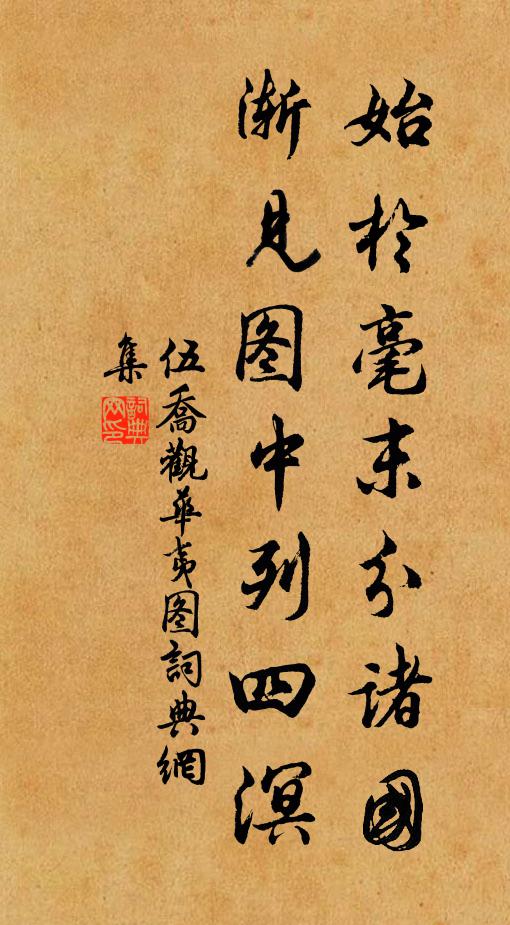 始於毫末分諸國
漸見图中列四溟
伍喬觀華夷图詞典網
集
詞典网印